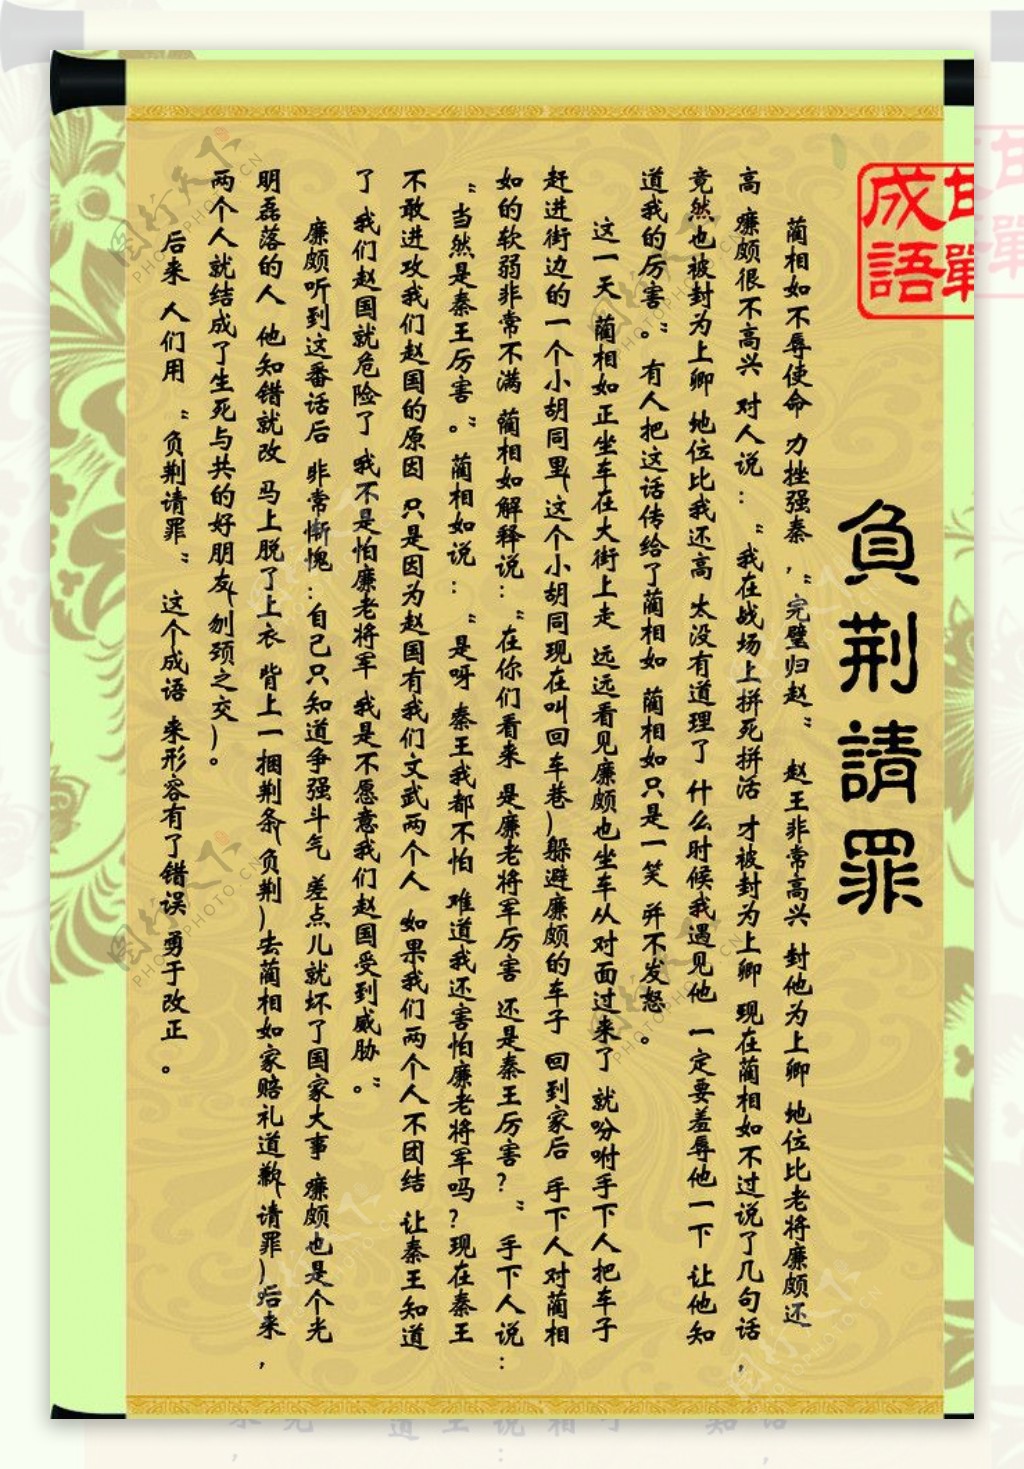 甘單
成語
負荆請罪
蔺相如不辱使命 力挫强秦，“完璧归赵” 赵王非常高兴 封他为上卿 地位比老将廉颇还
高 廉颇很不高兴 对人说：“我在战场上拼死拼活 才被封为上卿 现在蔺相如不过说了几句话，
竟然也被封为上卿 地位比我还高 太没有道理了 什么时候我遇见他 一定要羞辱他一下 让他知
道我的厉害。”有人把这话传给了蔺相如 蔺相如只是一笑 并不发怒。
这一天 蔺相如正坐车在大街上走 远远看见廉颇也坐车从对面过来了 就吩咐手下人把车子
赶进街边的一个小胡同里(这个小胡同现在叫回车巷)躲避廉颇的车子 回到家后 手下人对蔺相
如的软弱非常不满 蔺相如解释说：“在你们看来 是廉老将军厉害 还是秦王厉害？” 手下人说：
“当然是秦王厉害”。蔺相如说：“是呀 秦王我都不怕 难道我还害怕廉老将军吗？现在秦王
不敢进攻我们赵国的原因 只是因为赵国有我们文武两个人 如果我们两个人不团结 让秦王知道
了 我们赵国就危险了 我不是怕廉老将军 我是不愿意我们赵国受到威胁。”
廉颇听到这番话后 非常惭愧：自己只知道争强斗气 差点儿就坏了国家大事 廉颇也是个光
明磊落的人 他知错就改 马上脱了上衣 背上一捆荆条(负荆)去蔺相如家赔礼道歉(请罪)后来，
两个人就结成了生死与共的好朋友(刎颈之交)。
后来 人们用 “负荆请罪” 这个成语 来形容有了错误 勇于改正。
图行天下
PHOTOPHOTO.CN